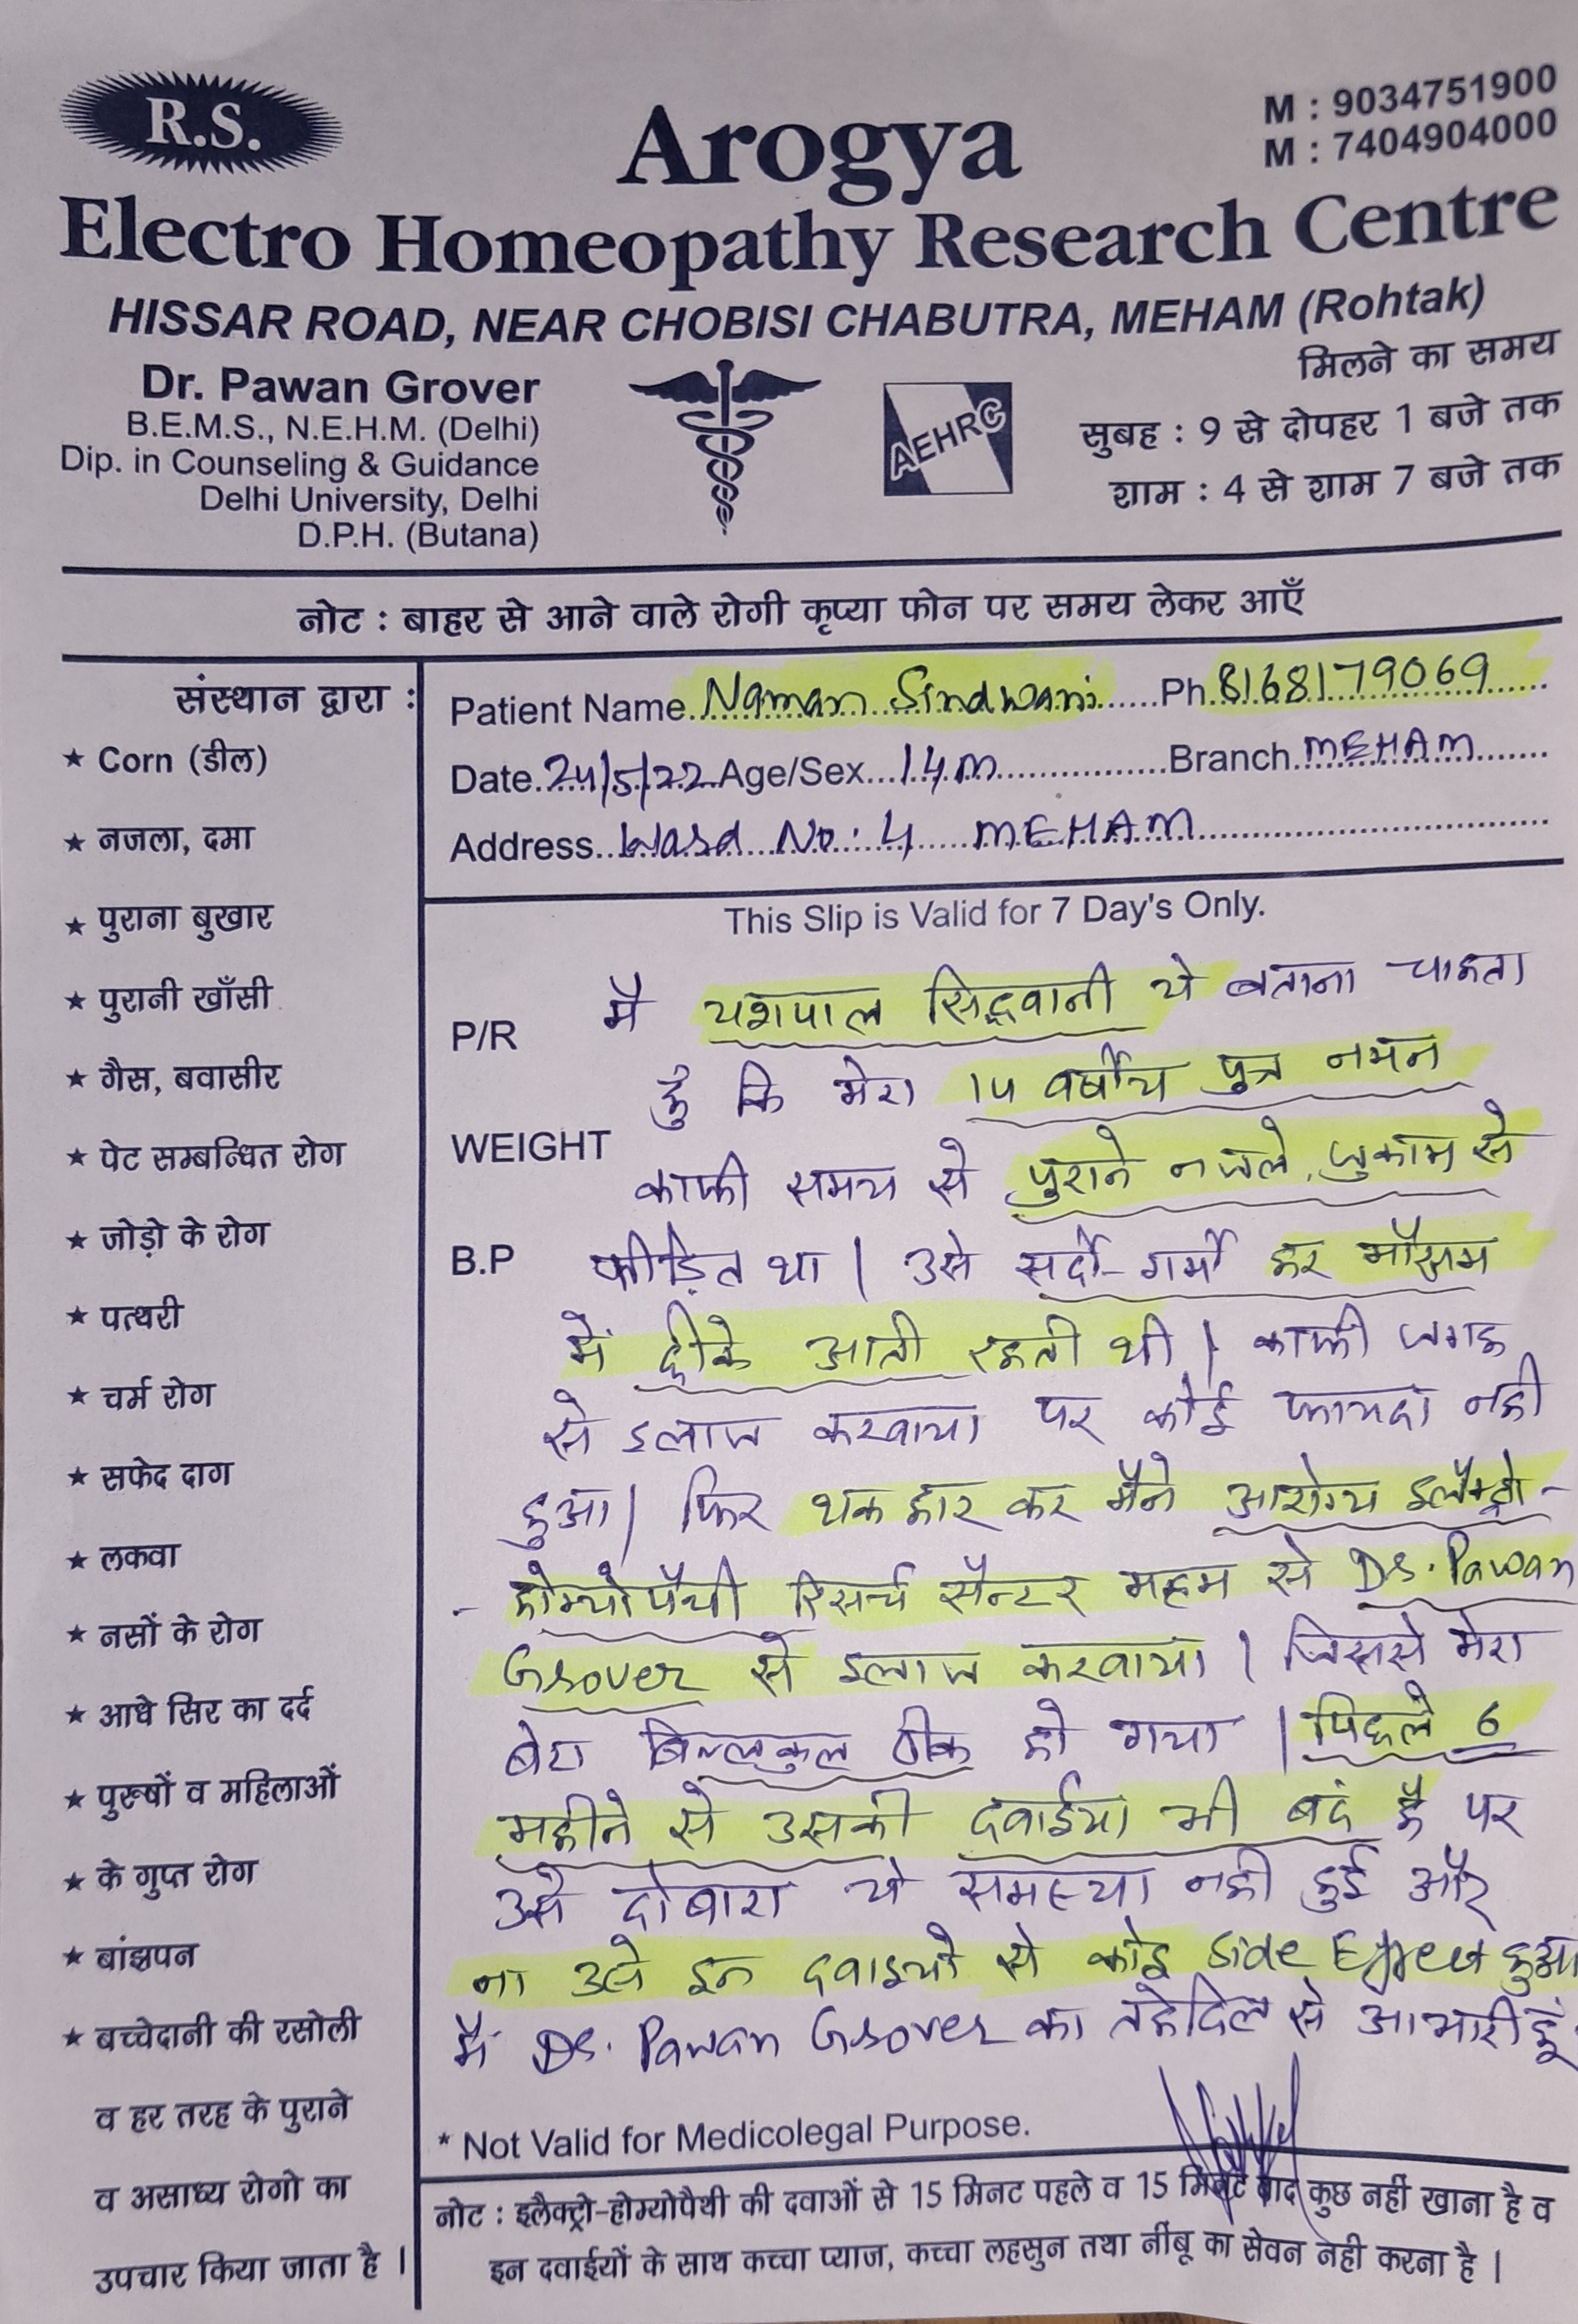 R.S.
M : 9034751900
M : 7404904000
Arogya
Electro Homeopathy Research Centre
HISSAR ROAD, NEAR CHOBISI CHABUTRA, MEHAM (Rohtak)
Dr. Pawan Grover
B.E.M.S., N.E.H.M. (Delhi)
Dip. in Counseling & Guidance
Delhi University, Delhi
D.P.H. (Butana)
AEHRC
मिलने का समय
सुबह : 9 से दोपहर 1 बजे तक
शाम : 4 से शाम 7 बजे तक
नोट : बाहर से आने वाले रोगी कृप्या फोन पर समय लेकर आएँ
संस्थान द्वारा :
★ Corn (डील)
★ नजला, दमा
★ पुराना बुखार
★ पुरानी खाँसी
★ गैस, बवासीर
★ पेट सम्बन्धित रोग
★ जोड़ो के रोग
★ पत्थरी
★ चर्म रोग
★ सफेद दाग
★ लकवा
★ नसों के रोग
★ आधे सिर का दर्द
★ पुरूषों व महिलाओं
★ के गुप्त रोग
★ बांझपन
★ बच्चेदानी की रसोली
व हर तरह के पुराने
व असाध्य रोगो का
उपचार किया जाता है ।
Patient Name Naman Sindwani Ph. 8168179069
Date 24/5/22 Age/Sex 14 M Branch MEHAM
Address Ward No: 4 MEHAM
This Slip is Valid for 7 Day's Only.
P/R
WEIGHT
B.P
मै यशपाल सिद्धवानी ये बताना चाहता
हुँ कि मेरा 14 वर्षीय पुत्र नमन
काफी समय से पुराने नजले, जुकाम से
पीड़ित था | उसे सर्दी-गर्मी हर मौसम
में छीके आती रहती थी | काफी जगह
से इलाज करवाया पर कोई फायदा नही
हुआ | फिर थक हार कर मैने आरोग्य इलैक्ट्रो-
- होम्योपैथी रिसर्च सैन्टर महम से Dr. Pawan
Grover से इलाज करवाया | जिससे मेरा
बेटा बिल्कुल ठीक हो गया | पिछले 6
महीने से उसकी दवाईया भी बदं है पर
उसे दोबारा ये समस्या नही हुई और
ना उसे इन दवाइयो से कोई Side Effect हुआ
मैं Dr. Pawan Grover का तहेदिल से आभारी हूँ
* Not Valid for Medicolegal Purpose.
नोट : इलैक्ट्रो-होम्योपैथी की दवाओं से 15 मिनट पहले व 15 मिनट बाद कुछ नहीं खाना है व
इन दवाईयों के साथ कच्चा प्याज, कच्चा लहसुन तथा नींबू का सेवन नही करना है ।